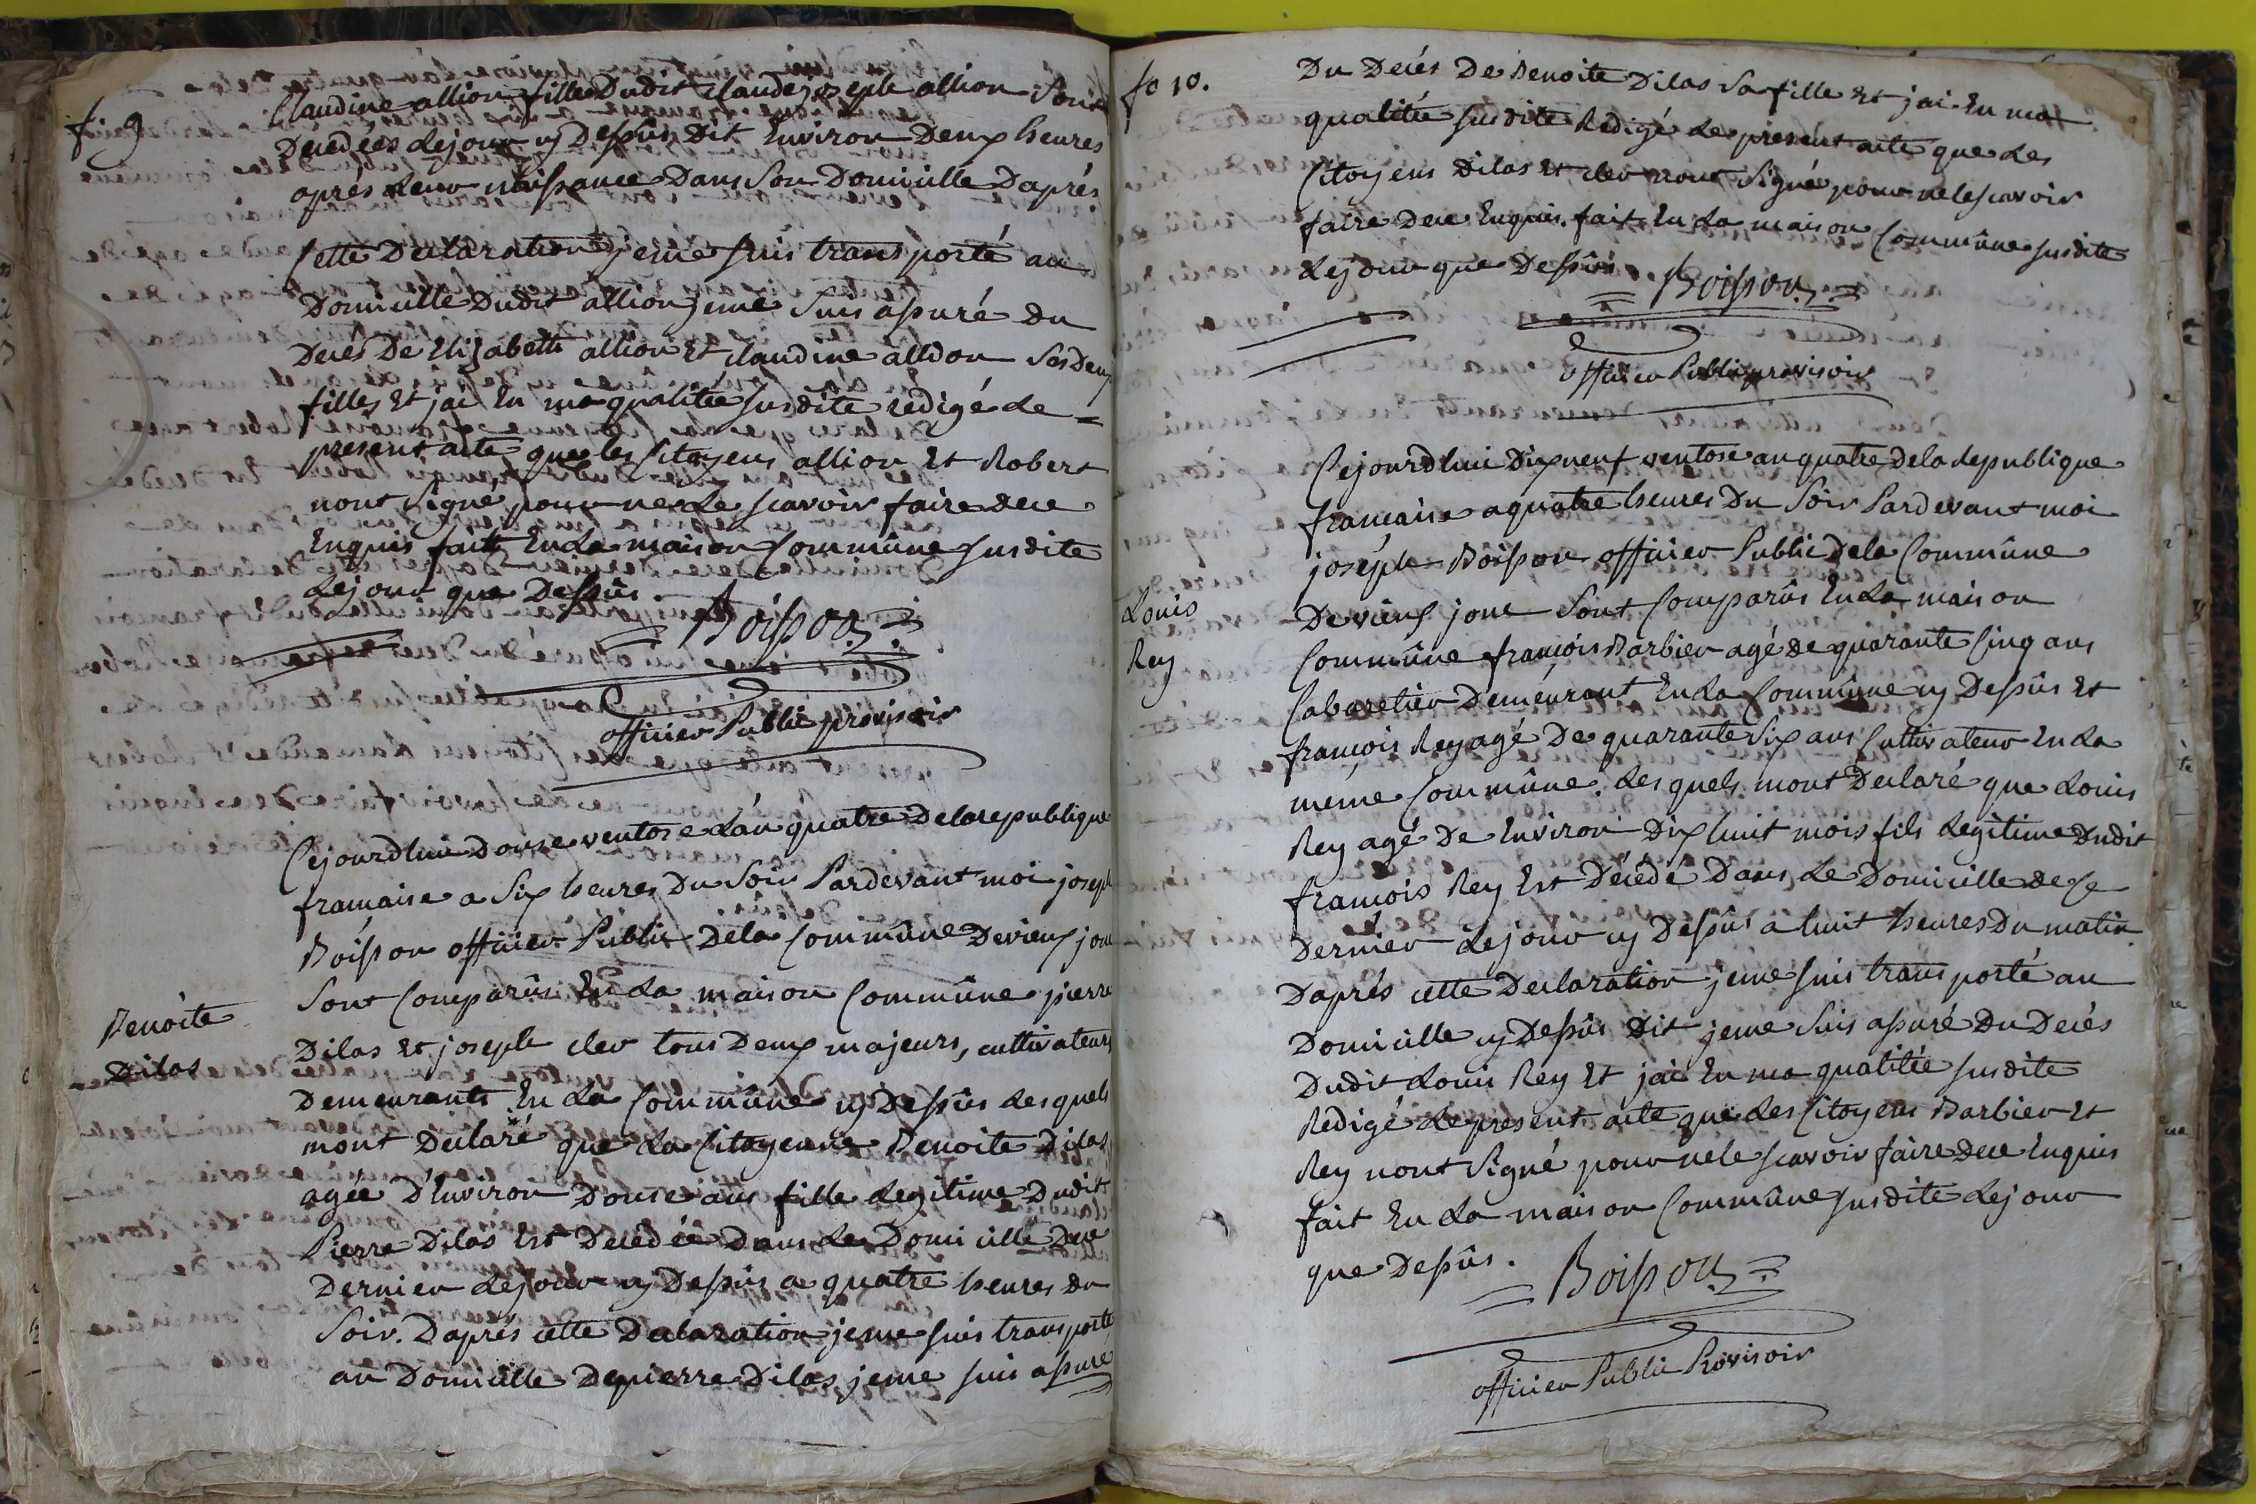 fo 9
Claudine allion filles Dudit claude joseph allion Sont
Decedées lejour cy Dessûs Dit Environ Deux heures
aprés leur naissance Dans Son Domicille Daprés
Cette Declaration jeme suis transporté au
Domicille Dudit allion jeme Suis assuré du
Decés De Elizabeth allion et claudine allion Ses Deux
filles Et jai En ma qualitée susdite redigé le
present acte que les Citoyens allion Et Robert
nont Signé pour ne le scavoir faire dece
Enquis fait En la maison Commûne susdite
lejour que Dessûs.
Boisson
officier Public provisoir
Cejourdhui Douse ventose lán quatre Delarepublique
francaise a Six heures Du Soir Pardevant moi joseph
Boisson officier Public Dela Commûne Devieux jou
Sont Comparûs En la maison Commûne pierre
Benoite
Dilas
Dilas Et joseph cler tous Deux majeurs, cultivateurs
Demeurants En la Commûne cy Dessûs lesquels
mont Declaré que la Citoyenne Benoite Dilas
agée D'Environ Douse ans fille Legitime Dudit
Pierre Dilas Est Decedée Dans le Domicille Dece
Dernier lejour cy Dessûs a quatre heures du
Soir. Daprés cette Declaration jeme suis transporté
au Domicille Depierre Dilas jeme suis assuré
fo 10.
Du Decés De Benoite Dilas Sa fille Et jai En ma
qualitée susdite Redigé le present acte que les
Citoyens Dilas Et cler nont Signé pour nele Scavoir
faire Dece Enquis. fait En la maison Commûne susdite
lejour que Dessûs
Boisson
officier Public provisoir
Cejourdhui Dix neuf ventose an quatre dela Republique
francaise aquatre heures Du Soir Pardevant moi
joseph Boisson officier Public Dela Commûne
Louis
Rey
Devieux jone Sont Comparûs En la maison
Commûne françois Barbier agé de quarante Cinq ans
Cabaretier Demeurant En la Commûne cy Dessûs Et
françois Rey agé De quarante Six ans Cultivateur En la
même Commûne. lesquels mont Declaré que Louis
Rey agé De Environ Dix huit mois fils Legitime Dudit
francois Rey Est Décédé Dans le Domicille de Ce
Dernier lejour cy Dessûs a huit heures Du matin.
Daprés cette Declaration jeme suis transporté au
Domicille cy Dessûs Dit jeme Suis assuré Du Decés
Dudit Louis Rey Et jai En ma qualitée susdite
Redigé le present acte que les Citoyens Barbier Et
Rey nont Signé pour nele scavoir faire Dece Enquis
fait En la maison Commûne susdite Lejour
que Dessûs.
Boisson
officier Public Provisoir